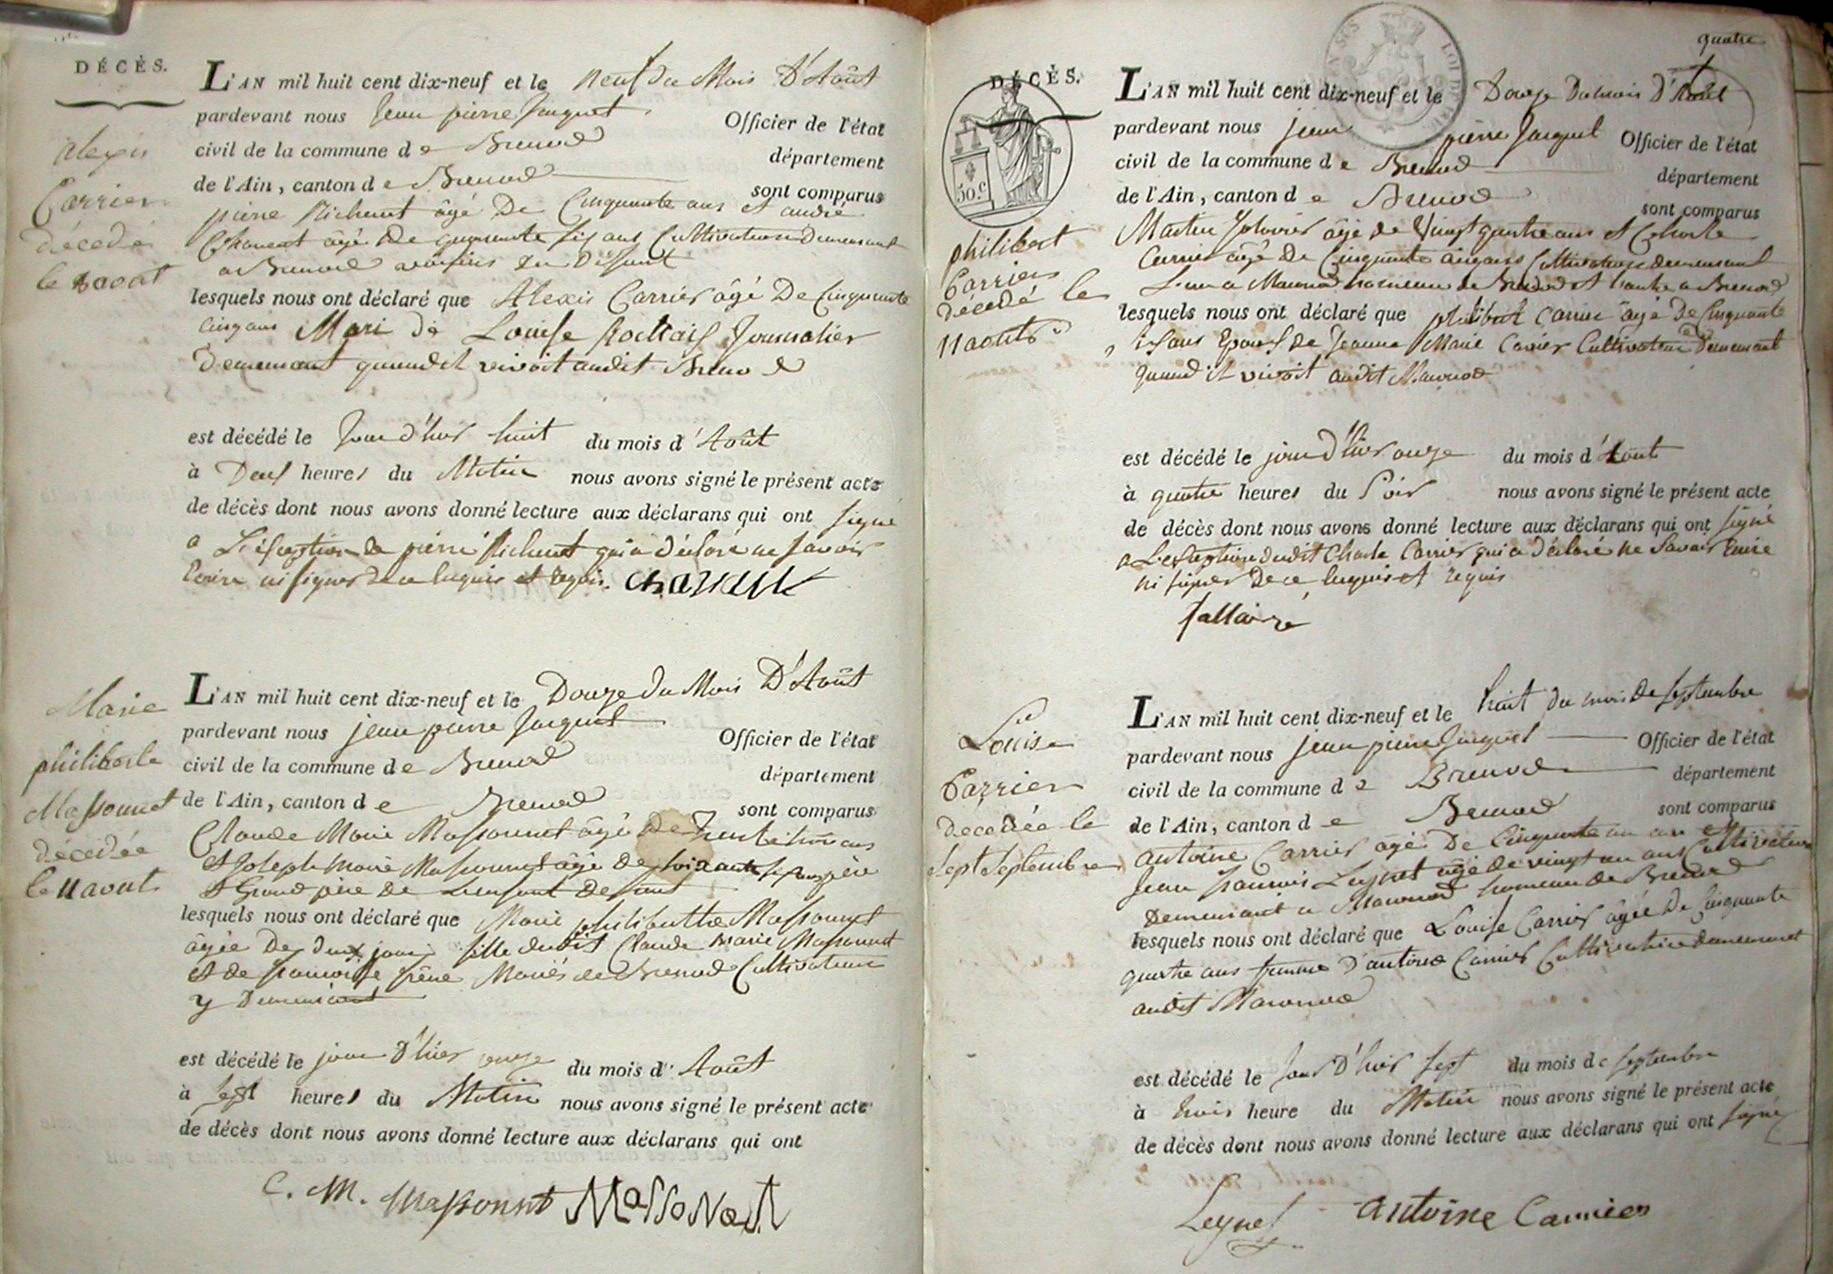 DÉCÈS.
alexis
Carrier
décedé
le 8 aout
L'AN mil huit cent dix-neuf et le neuf du Mois D'Août
pardevant nous Jean pierre Jacquet Officier de l'état
civil de la commune de Brenod département
de l'Ain, canton de Brenod sont comparus
pierre Richerot âgé De Cinquante ans et andré
Chavent âgé de quarante six ans Cultivateurs Demeurant
a Brenod voisins du Défunt
lesquels nous ont déclaré que Alexis Carrier âgé De Cinquante
cinq ans Mari de Louise Journalier
Demeurant quand il vivoit audit Brenod
est décédé le Jour d'hier huit du mois d'Août
à Deux heures du Matin nous avons signé le présent acte
de décès dont nous avons donné lecture aux déclarans qui ont signé
a L'éxception de pierre Richerot qui a déclaré ne savoir
Ecrire ni signer de ce enquis et requis. chavent
Marie
philiberte
Massonnet
décedée
le 11 aout
L'AN mil huit cent dix-neuf et le Douze du Mois D'Août
pardevant nous jean pierre Jacquet Officier de l'état
civil de la commune de Brenod département
de l'Ain, canton de Brenod sont comparus
Claude Marie Massonnet âgé de Trente trois ans
et Joseph Marie Massonnet âgé de soixante sept ans père
et Grand père de L'enfant défunt
lesquels nous ont déclaré que Marie philiberthe Massonnet
âgée De deux jours fille dudit Claude Marie Massonnet
et de francoise frêne Mariés de Brenod Cultivateurs
y Demeurant
est décédé le jour d'hier onze du mois d'Août
à sept heures du Matin nous avons signé le présent acte
de décès dont nous avons donné lecture aux déclarans qui ont
C. M. Massonnet Massonet
quatre
DÉCÈS.
50.c
philibert
Carrier
décedé le
11 aout
L'AN mil huit cent dix-neuf et le Douze Du mois D'Août
pardevant nous jean pierre Jacquet Officier de l'état
civil de la commune de Brenod département
de l'Ain, canton de Brenod sont comparus
Martin âgé de Vingt quatre ans et Charle
Carrier âgé de Cinquante cinq ans Cultivateurs demeurant
L'un a Macconod hameau de Brenod et l'autre a Brenod
lesquels nous ont déclaré que philibert Carrier âgé De Cinquante
six ans Epoux de Jeanne Marie Carrier Cultivateur Demeurant
quand il vivoit audit Macconod
est décédé le jour d'hier onze du mois d'Août
à quatre heures du Soir nous avons signé le présent acte
de décès dont nous avons donné lecture aux déclarans qui ont signé
a L'exception dudit Charle Carrier qui a déclaré ne Savoir Ecrire
ni signer de ce enquis et requis
Louise
Carrier
decedée le
sept Septembre
L'AN mil huit cent dix-neuf et le huit du mois de septembre
pardevant nous jean pierre Jacquet Officier de l'état
civil de la commune de Brenod département
de l'Ain, canton de Brenod sont comparus
antoine Carrier âgé De Cinquante un an et
Jean francois Leynet âgé de vingt un ans Cultivateurs
Demeurant a Macconod hameau de Brenod
lesquels nous ont déclaré que Louise Carrier âgée De Cinquante
quatre ans femme D'antoine Carrier Cultivatrice demeurant
audit Macconod
est décédé le Jour D'hier sept du mois de septembre
à trois heure du Matin nous avons signé le présent acte
de décès dont nous avons donné lecture aux déclarans qui ont signé
Leynet antoine Carrier